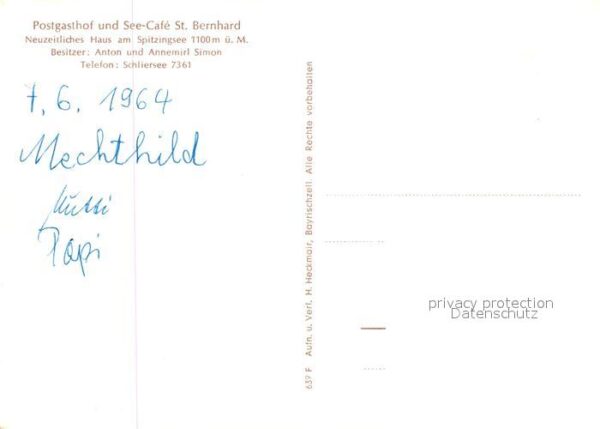 Postgasthof und See-Café St. Bernhard
Neuzeitliches Haus am Spitzingsee 1100 m ü. M.
Besitzer: Anton und Annemirl Simon
Telefon: Schliersee 7361
7. 6. 1964
Mechthild
Mutti
Papi
639 F Aufn. u. Verl. H. Heckmair, Bayrischzell. Alle Rechte vorbehalten
privacy protection
Datenschutz